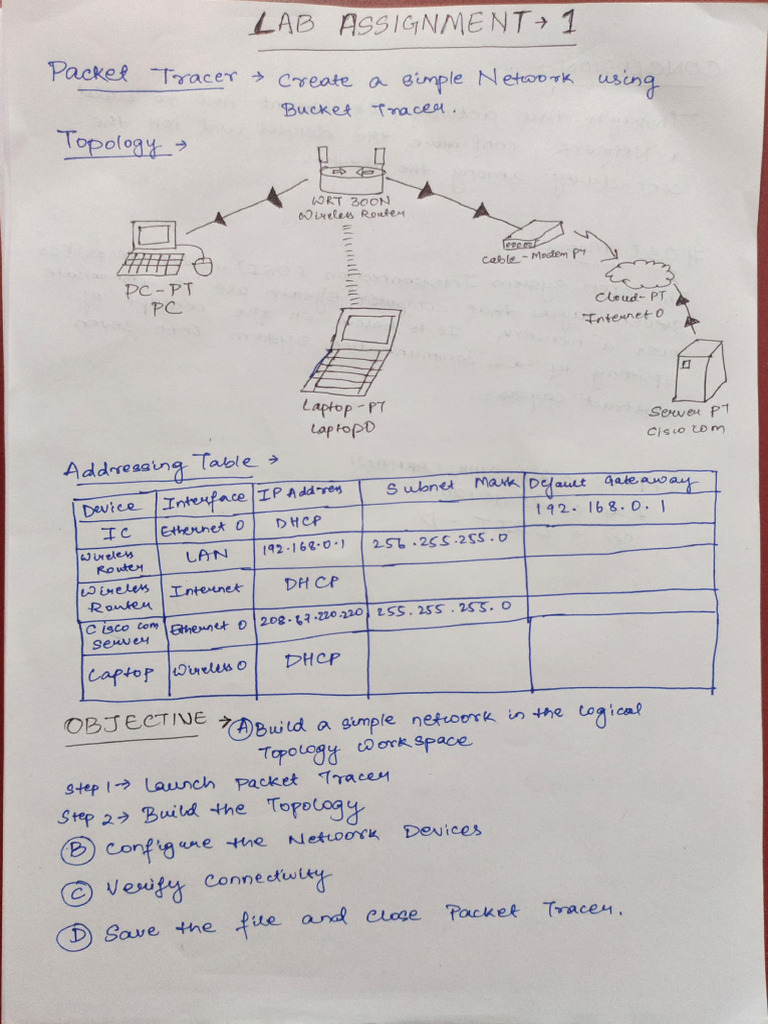 LAB ASSIGNMENT → 1
Packet Tracer → Create a simple Network using
Bucket Tracer.
Topology →
WRT 300N
Wireless Router
PC-PT
PC
Cable-Modem PT
Cloud-PT
Internet 0
Laptop-PT
Laptop0
Server PT
Cisco com
Addressing Table →
Device Interface IP Address Subnet Mark Default Gateaway
IC Ethernet 0 DHCP 192.168.0.1
Wireless Router LAN 192.168.0.1 256.255.255.0
Wireless Router Internet DHCP
Cisco com Server Ethernet 0 208.67.220.220 255.255.255.0
Laptop Wireless 0 DHCP
OBJECTIVE → (A) Build a simple network in the logical
Topology workspace
Step 1 → Launch Packet Tracer
Step 2 → Build the Topology
(B) Configure the Network Devices
(C) Verify Connectivity
(D) Save the file and close Packet Tracer.